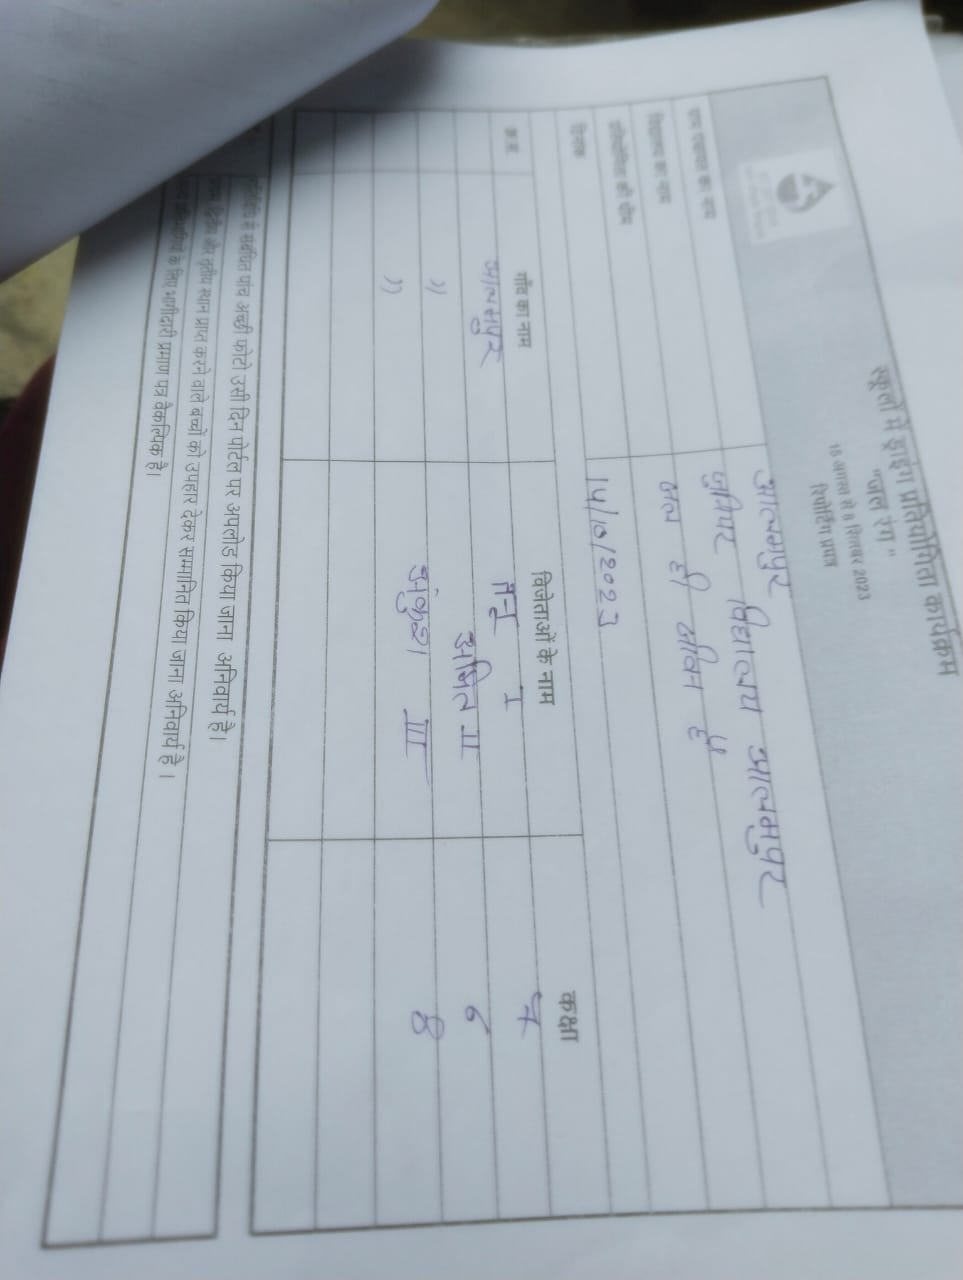 स्कूलों में ड्राइंग प्रतियोगिता कार्यक्रम
"जल रंग"
16 अगस्त से 8 सितंबर 2023
रिपोर्टिंग प्रपत्र
ग्राम पंचायत का नाम आलमपुर
विद्यालय का नाम जूनियर विद्यालय आलमपुर
प्रतियोगिता की थीम जल ही जीवन है
दिनांक 14/9/2023
क्र.सं. गाँव का नाम विजेताओं के नाम कक्षा
आलमपुर तनु I 7
" अमित II 6
" अंकुश III 8
से संबंधित पांच अच्छी फोटो उसी दिन पोर्टल पर अपलोड किया जाना अनिवार्य है।
द्वितीय और तृतीय स्थान प्राप्त करने वाले बच्चों को उपहार देकर सम्मानित किया जाना अनिवार्य है।
के लिए भागीदारी प्रमाण पत्र वैकल्पिक है।